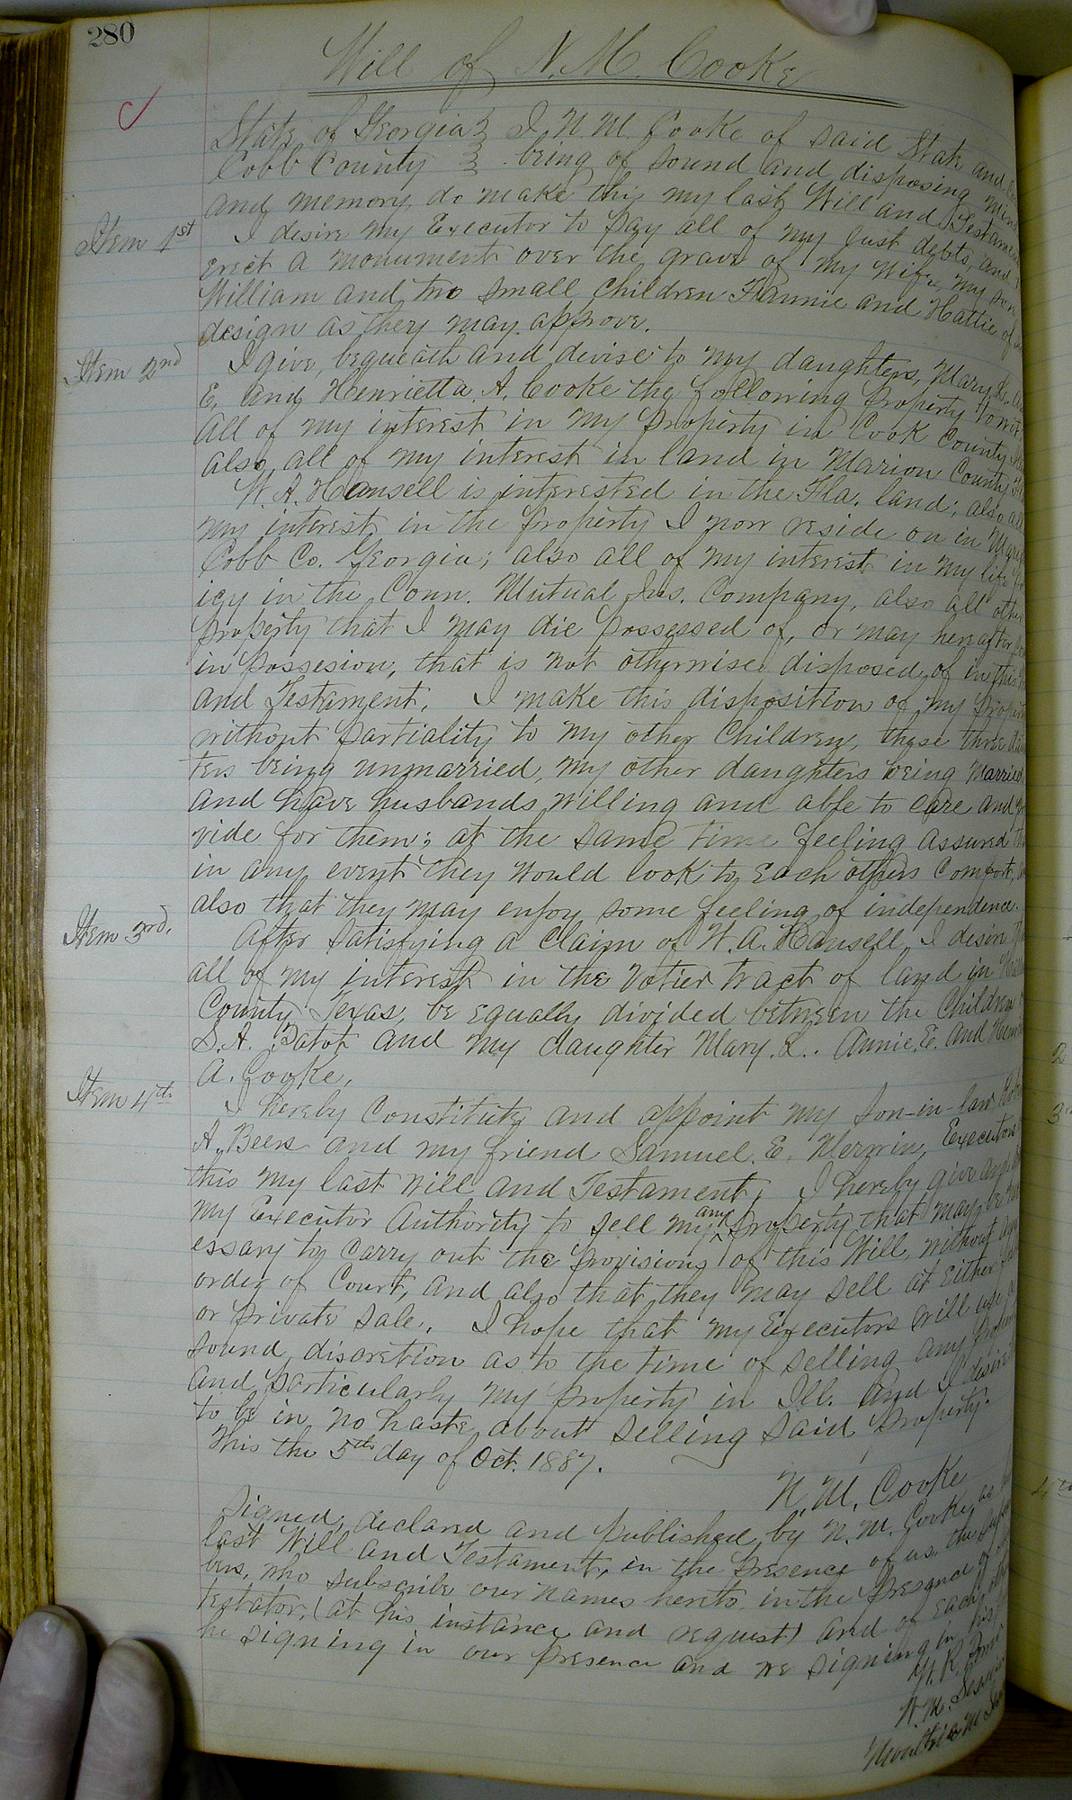 280
Will of N. M. Cooke
State of Georgia } I N. M. Cooke of said State and
Cobb County } being of sound and disposing mind
and memory, do make this my last Will and Testament
Item 1st I desire my Executor to pay all of my just debts, and
erect a monument over the grave of my Wife, my son
William and two small Children Fannie and Hattie of
design as they may approve.
Item 2nd I give, bequeath and devise to my daughters, Mary L.
E. and Henrietta A. Cooke the following property to wit,
All of my interest in my property in Cook County
also, all of my interest in land in Marion County
W. A. Hansell is interested in the Fla. land; also all
my interest in the property I now reside on in
Cobb Co. Georgia; also all of my interest in my life
icy in the Conn. Mutual Ins. Company, also all other
property that I may die possessed of, or may hereafter
in possesion, that is not otherwise disposed of in this
and Testament. I make this disposition of my
without partiality to my other Children, these three
ters being unmarried, my other daughters being Married
and have husbands, willing and able to care and
vide for them; at the same time feeling assured
in any event they would look to each others Comfort,
also that they may enjoy some feeling of independence.
Item 3rd. After satisfying a Claim of W. A. Hansell, I desire
all of my interest in the Votier tract of land in
County Texas, be equally divided between the Children
S. A. and my daughter Mary. L.. Annie. E. and
A. Cooke.
Item 4th I hereby Constitute and appoint my Son-in-law
A. Beers and my friend Samuel. E. Merwin, Executors
this my last will and Testament; I hereby give
my Executor Authority to sell my any property that may be
essary to carry out the provisions of this Will, without
order of Court, and also that they may sell at Either
or private sale. I hope that my Executors will use
sound discretion as to the time of selling any
and particularly my property in Ill. and I desire
to be in no haste about selling said property.
This the 5th day of Oct. 1887.
N. M. Cooke
Signed, declared and published by N. M. Cooke, as
last Will and Testament, in the presence of us, the
bers, who subscribe our names hereto in the presence of
testator, (at his instance and request) and of each other
he signing in our presence and we signing in his
W. R.
W. M.
M.
2
3rd
4th